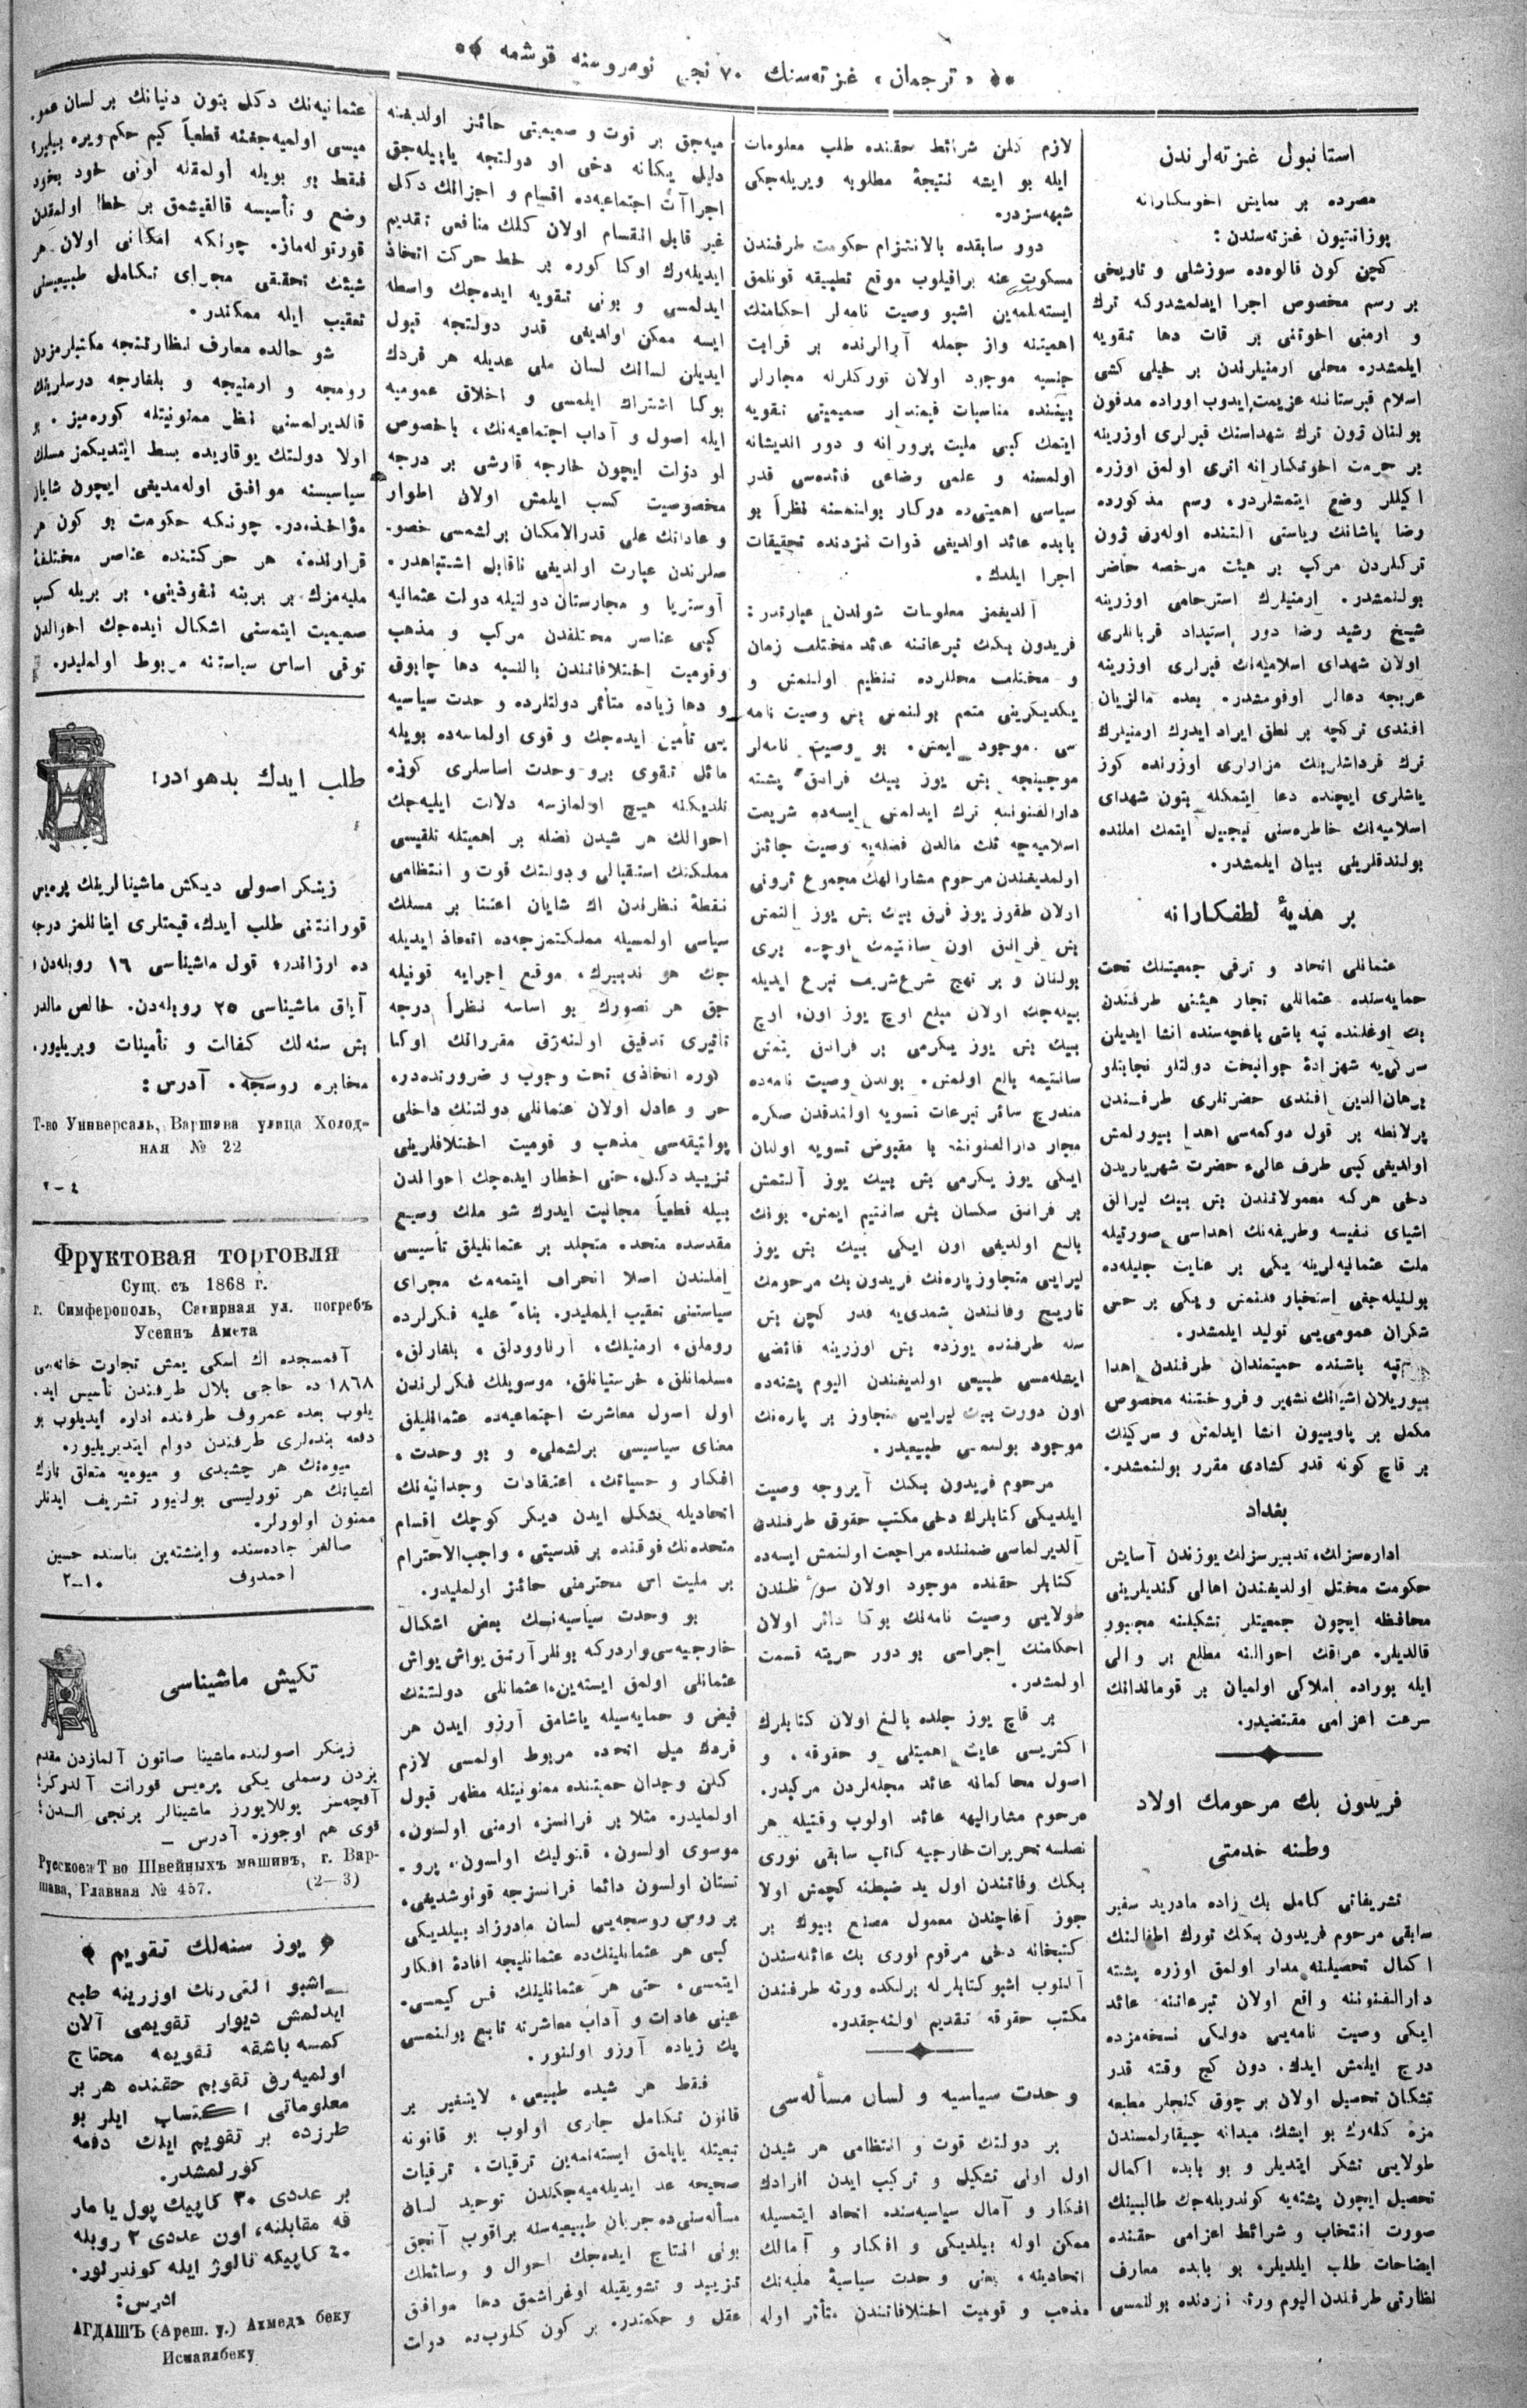 «ترجمان» غزته‌سنك ۷۰ نجی نومروسنه قوشمه
استانبول غزته‌لرندن
مصرده بر نمایش اخوتكارانه
بوزانتیون غزته‌سندن:
كچن كون قالوه‌ده سوزشلی و تاریخی
بر رسم مخصوص اجرا ایدلمشدركه ترك
و ارمنی اخوتنی بر قات دها تقویه
ایلمشدر. محلی ارمنیلرندن بر خیلی كشی
اسلام قبرستاننه عزیمت ایدوب اوراده مدفون
بولنان ژون ترك شهداسنك قبرلری اوزرینه
بر حرمت اخوتكارانه اثری اولمق اوزره
اكیللر وضع ایتمشلردر. رسم مذكورده
رضا پاشانك ریاستی آلتنده اوله‌رق ژون
تركلردن مركب بر هیئت مرخصه حاضر
بولنمشدر. ارمنیلرك استرحامی اوزرینه
شیخ رشید رضا دور استبداد قربانلری
اولان شهدای اسلامیه‌نك قبرلری اوزرینه
عربجه دعالر اوقومشدر. بعده مالزیان
افندی تركچه بر نطق ایراد ایدرك ارمنیلرك
ترك قرداشلرینك مزاراری اوزرنده كوز
یاشلری ایچنده دعا ایتمكله بتون شهدای
اسلامیه‌نك خاطره‌سنی تبجیل ایتمك املنده
بولندقلرینی بیان ایلمشدر.
بر هدیهٔ لطفكارانه
عثمانلی اتحاد و ترقی جمعیتنك تحت
حمایه‌سنده عثمانلی تجار هیئتی طرفندن
بك اوغلنده تپه باشی باغچه‌سنده انشا ایدیلن
سركی‌یه شهزادهٔ جوانبخت دولتلو نجابتلو
برهان‌الدین افندی حضرتلری طرفندن
پرلانطه بر قول دوكمه‌سی اهدا بیورلمش
اولدیغی كبی طرف عالیء حضرت شهریاریدن
دخی هركه معمولاتندن بش بیك لیرالق
اشیای نفیسه وظریفه‌نك اهداسی صورتیله
ملت عثمانیه‌لرینه یكی بر عنایت جلیله‌ده
بولنیله‌جغی استخبار قلنمش و یكی بر حس
شكران عمومی‌یی تولید ایلمشدر.
تپه باشنده حمیتمندان طرفندن اهدا
بیوریلان اشیانك تشهیر و فروختنه مخصوص
مكمل بر پاویییون انشا ایدلمش و سركینك
بر قاچ كونه قدر كشادی مقرر بولنمشدر.
بغداد
اداره‌سزلك، تدبیرسزلك یوزندن آسایش
حكومت مختل اولدیغندن اهالی كندیلرینی
محافظه ایچون جمعیتلر تشكیلنه مجبور
قالدیلر. عراقك احوالنه مطلع بر والی
ایله بوراده املاكی اولمیان بر قوماندانك
سرعت اعزامی مقتضیدر.
فریدون بك مرحومك اولاد
وطنه خدمتی
تشریفاتی كامل بك زاده مادرید سفیر
سابقی مرحوم فریدون بكك تورك اطفالنك
اكمال تحصیلنه مدار اولمق اوزره پشته
دارالفنوننه واقع اولان تبرعاتنه عائد
ایكی وصیت نامه‌یی دولكی نسخه‌مزده
درج ایلمش ایدك. دون كیج وقته قدر
تشنكان تحصیل اولان بر چوق كنجلر مطبعه
مزه كله‌رك بو ایشك میدانه چیقارلمسندن
طولایی تشكر ایتدیلر و بو بابده اكمال
تحصیل ایچون پشته‌یه كوندریله‌جك طالبینك
صورت انتخاب و شرائط اعزامی حقنده
ایضاحات طلب ایلدیلر. بو بابده معارف
نظارتی طرفندن الیوم ورثه نزدنده بولنمسی
لازم كلن شرائط حقنده طلب معلومات
ایله بو ایشه نتیجهٔ مطلوبه ویریله‌جكی
شبهه‌سزدر.
دور سابقده بالانتزام حكومت طرفندن
مسكوت عنه براقیلوب موقع تطبیقه قونلمق
ایسته‌نلمه‌ین اشبو وصیت نامه‌لر احكامنك
اهمیتنه واز جمله آرالرنده بر قرابت
جنسیه موجود اولان توركلرله مجارلر
بیننده مناسبات قیمتدار صمیمیتی تقویه
ایتمك كبی ملیت پرورانه و دور اندیشانه
اولمسنه و علمی وضاعی فائده‌سی قدر
سیاسی اهمیتی‌ده دركار بولنمسنه نظراً بو
بابده عائد اولدیغی ذوات نزدنده تحقیقات
اجرا ایلدك.
آلدیغمز معلومات شولدن عبارتدر:
فریدون بكك تبرعاتنه عائد مختلف زمان
و مختلف محللرده تنظیم اولنمش و
یكدیكرینی متمم بولنمش بش وصیت نامه
سی موجود ایمش. بو وصیت نامه‌لر
موجبنجه بش یوز بیك فرانق پشته
دارالفنوننه ترك ایدلمش ایسه‌ده شریعت
اسلامیه‌چه ثلث مالدن فضله‌یه وصیت جائز
اولمدیغندن مرحوم مشارالیهك مجموع ثروتی
اولان طقوز یوز قرق بیك بش یوز آلتمش
بش فرانق اون سانتیمك اوچده بری
بولنان و بر نهج شرع‌شریف تبرع ایدیله
بیله‌جك اولان مبلغ اوچ یوز اون اوچ
بیك بش یوز یكرمی بر فرانق یتمش
سانتیمه بالغ اولمش. بوندن وصیت نامه‌ده
مندرج سائر تبرعات تسویه اولندقدن صكره
مجار دارالفنوننه با مقبوض تسویه اولنان
ایكی یوز یكرمی بش بیك یوز آلتمش
بر فرانق سكسان بش سانتیم ایمش. بونك
بالغ اولدیغی اون ایكی بیك بش یوز
لیرایی متجاوز پاره‌نك فریدون بك مرحومك
تاریخ وفاتندن شمدی‌یه قدر كچن بش
سنه طرفنده یوزده بش اوزرینه فائضی
ایشله‌مسی طبیعی اولدیغندن الیوم پشته‌ده
اون دورت بیك لیرایی متجاوز بر پاره‌نك
موجود بولنمسی طبیعیدر.
مرحوم فریدون بكك آیروجه وصیت
ایلدیكی كتابلرك دخی مكتب حقوق طرفندن
آلدیرلماسی ضمننده مراجعت اولنمش ایسه‌ده
كتابلر حقنده موجود اولان سوء ظندن
طولایی وصیت نامه‌نك بوكا دائر اولان
احكامنك اجراسی بو دور حریته قسمت
اولمشدر.
بر قاچ یوز جلده بالغ اولان كتابلرك
اكثریسی غایت اهمیتلی و حقوقه، و
اصول محاكمانه عائد مجله‌لردن مركبدر.
مرحوم مشارالیهه عائد اولوب وقتیله هر
نصلسه تحریرات خارجیه كاتب سابقی نوری
بكك وفاتندن اول ید ضبطنه كچمش اولا
جوز آغاچندن معمول مصنع بیوك بر
كتبخانه دخی مرقوم نوری بك عائله‌سندن
آلنوب اشبو كتابلر له برلكده ورثه طرفندن
مكتب حقوقه تقدیم اولنه‌جقدر.
وحدت سیاسیه و لسان مسأله‌سی
بر دولتك قوت و انتظامی هر شیدن
اول اونی تشكیل و تركیب ایدن افرادك
افكار و آمال سیاسیه‌سنده اتحاد ایتمسیله
ممكن اوله بیلدیكی و افكار و آمالك
اتحادینه، یعنی وحدت سیاسیهٔ ملیه‌نك
مذهب و قومیت اختلافاتندن متأثر اوله
میه‌جق بر قوت و صمیمیتی حائز اولدیغنه
دلیل یكانه دخی او دولتجه یاپیله‌جق
اجراآت اجتماعیه‌ده اقسام و اجزانك دكل
غیر قابل انقسام اولان كلك منافعی تقدیم
ایدیله‌رك اوكا كوره بر خط حركت اتخاذ
ایدلمسی و بونی تقویه ایده‌جك واسطه
ایسه ممكن اولدیغی قدر دولتجه قبول
ایدیلن لسانك لسان ملی عدیله هر فردك
بوكا اشتراك ایلمسی و اخلاق عمومیه
ایله اصول و آداب اجتماعیه‌نك، باخصوص
او دولت ایچون خارجه قارشی بر درجه
مخصوصیت كسب ایلمش اولان اطوار
و عاداتك علی قدرالامكان برلشمسی خصو-
صلرندن عبارت اولدیغی ناقابل اشتباهدر.
آوستریا و مجارستان دولتیله دولت عثمانیه
كبی عناصر مختلفه‌دن مركب و مذهب
وقومیت اختلافاتندن بالنسبه دها چابوق
و دها زیاده متأثر دولتلرده و حدت سیاسیه
یی تأمین ایده‌جك و قوی اولماسه‌ده بویله
مائل تقوی برو وحدت اساسلری كوزه
تلدیكنه هیچ اولمازسه دلالت ایلیه‌جك
احوالك هر شیدن فضله بر اهمیتله تلقیسی
مملكتك استقبالی و دولتك قوت و انتظامی
نقطهٔ نظرندن اك شایان اعتنا بر مسلك
سیاسی اولمسیله مملكتمزجه‌ده اتخاذ ایدیله
جك هر تدبیرك، موقع اجرایه قونیله
جق هر تصورك بو اساسه نظراً درجه
تاثیری تدقیق اولنه‌رق مقرراتك اوكا
كوره اتخاذی تحت وجوب و ضرورتده‌در.
حر و عادل اولان عثمانلی دولتنك داخلی
پولتیقه‌سی مذهب و قومیت اختلافلرینی
تزیید دكل، حتی اخطار ایده‌جك احوالدن
بیله قطعیاً مجانبت ایدرك شو ملك وسیع
مقدسده متحد، متجلد بر عثمانلیلق تأسیسی
املندن اصلا انحراف ایتمه‌مك مجرای
سیاستنی تعقیب ایلملیدر. بناءً علیه فكرلرده
روملق، ارمنیلك، آرناوودلق، بلغارلق،
مسلمانلق، خرستیانلق، موسویلك فكرلرندن
اول اصول معاشرت اجتماعیه‌ده عثمانلیلق
معنای سیاسیسی برلشملی، و بو وحدت،
افكار و حسیاتك، اعتقادات وجدانیه‌نك
اتحادیله تشكل ایدن دیكر كوچك اقسام
متحده‌نك فوقنده بر قدسیتی، واجب‌الاحترام
بر ملیت اس محترمنی حائز اولملیدر.
بو وحدت سیاسیه‌نك بعض اشكال
خارجیه‌سی واردركه بونلر آرتق یواش یواش
عثمانلی اولمق ایسته‌ین، عثمانلی دولتنك
فیض و حمایه‌سیله یاشامق آرزو ایدن هر
فردك میل اتحاده مربوط اولمسی لازم
كلن وجدان حمیتنده ممنونیتله مظهر قبول
اولملیدر. مثلا بر فرانسز، ارمنی اولسون،
موسوی اولسون، قتولیك اولسون، پرو-
تستان اولسون دائما فرانسزجه قونوشدیغی،
بر روس روسجه‌یی لسان مادرزاد بیلدیكی
كبی هر عثمانلینك‌ده عثمانلیجه افادهٔ افكار
ایتمسی، حتی هر عثمانلینك فس كیمسی،
عینی عادات و آداب معاشرته تابع بولنمسی
پك زیاده آرزو اولنور.
فقط هر شیده طبیعی، لایتغیر بر
قانون تكامل جاری اولوب بو قانونه
تبعیتله یاپلمق ایسته‌نلمه‌ین ترقیات، ترقیات
صحیحه عد ایدیله‌میه‌جكندن توحید لسان
مسأله‌سنی‌ده جریان طبیعیه‌سنه براقوب آنجق
بونی انتاج ایده‌جك احوال و وسائطك
تزیید و تشویقیله اوغراشمق دها موافق
عقل و حكمتدر. بر كون كلوب‌ده دولت
عثمانیه‌نك دكل بتون دنیانك بر لسان عمو-
میسی اولمیه‌جغنه قطعیاً كیم حكم ویره بیلیر؟
فقط بو بویله اولمقله اونی خود بخود
وضع و تأسیسه قالقیشمق بر خطا اولمقدن
قورتوله‌ماز. چونكه امكانی اولان هر
شیئك تحققی مجرای تكامل طبیعیسنی
تعقیب ایله ممكندر.
شو حالده معارف نظارتنجه مكتبلرمزدن
رومجه و ارمنیجه و بلغارجه درسلرینك
قالدیرلمسنی نظر ممنونیتله كوره‌میز. بو
اولا دولتك یوقاریده بسط ایتدیكمز مسلك
سیاسیسنه موافق اوله‌مدیغی ایچون شایان
مؤاخذه‌در. چونكه حكومت بو كون هر
قرارنده، هر حركتنده عناصر مختلفهٔ
ملیه‌مزك بر برینه تفوقینی، بر بریله كسب
صمیمیت ایتمسنی اشكال ایده‌جك احوالدن
توقی اساس سیاستنه مربوط اولملیدر.
طلب ایدك بدهوادر!
زینكر اصولی دیكش ماشینالرینك پره‌یس
قورانتنی طلب ایدك، قیمتلری اینانلمز درجه
ده ارزاندر؛ قول ماشیناسی ۱۶ روبله‌دن؛
آیاق ماشیناسی ۲۵ روبله‌دن. خالص مالدر
بش سنه‌لك كفالت و تأمینات ویریلیور.
مخابره روسجه. آدرس:
Т-во Универсаль, Варшава улица Холод-
ная № 22
۲—٤
Фруктовая торговля
Сущ. съ 1868 г.
г. Симферополь, Сагирная ул. погребъ
Усеинъ Амета
آقمسجده اك اسكی یمش تجارت خانه‌سی
۱۸٦۸ ده حاجی بلال طرفندن تأسیس اید.
یلوب بعده عمروف طرفنده اداره ایدیلوب بو
دفعه بنده‌لری طرفندن دوام ایتدیریلیور.
میوه‌نك هر چشیدی و میوه‌یه متعلق نازك
اشیانك هر تورلیسی بولنیور تشریف ایدنلر
ممنون اولورلر.
صالغر جاده‌سنده واینشته‌ین بناسنده حسین
احمدوف ۱۰—۲
تكیش ماشیناسی
زینكر اصولنده ماشینا صاتون آلمازدن مقدم
بزدن رسملی یكی پره‌یس قورانت آلدركز؛
آقچه‌سز یوللایورز ماشینالر برنجی الدن؛
قوی هم اوجوز. آدرس —
Русское Т во Швейныхъ машинъ, г. Вар-
шава, Главная № 457. (2—3)
یوز سنه‌لك تقویم
اشبو آلتی رنك اوزرینه طبع
ایدلمش دیوار تقویمی آلان
كمسه باشقه تقویمه محتاج
اولمیه‌رق تقویم حقنده هر بر
معلوماتی اكتساب ایلر بو
طرزده بر تقویم ایلك دفعه
كورلمشدر.
بر عددی ۳۰ كاپیك پول یا مار
قه مقابلنه، اون عددی ۲ روبله
٤۰ كاپیكه نالوژ ایله كوندرلور.
ادرس:
АГДАШЪ (Ареш. у.) Ахмедъ беку
Исмаилбеку